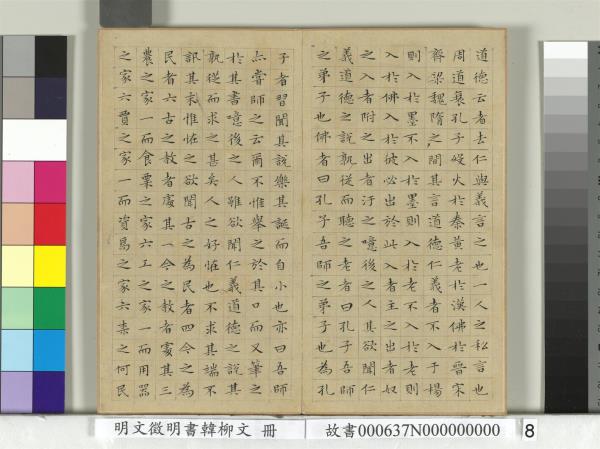 道德云者去仁與義言之也一人之私言也
周道衰孔子歿火於秦黃老於漢佛於晉宋
齊梁魏隋之間其言道德仁義者不入于楊
則入於墨不入於墨則入於老不入於老則
入於佛入於彼必出於此入者主之出者奴
之入者附之出者汙之噫後之人其欲聞仁
義道德之說孰從而聽之老者曰孔子吾師
之弟子也佛者曰孔子吾師之弟子也為孔
子者習聞其說樂其誕而自小也亦曰吾師
亦嘗師之云爾不惟舉之於其口而又筆之
於其書噫後之人雖欲聞仁義道德之說其
孰從而求之甚矣人之好怪也不求其端不
訊其末惟怪之欲聞古之為民者四今之為
民者六古之教者處其一今之教者處其三
農之家一而食粟之家六工之家一而用器
之家六賈之家一而資焉之家六柰之何民
明文徵明書韓柳文 冊
故書000637N000000000
8